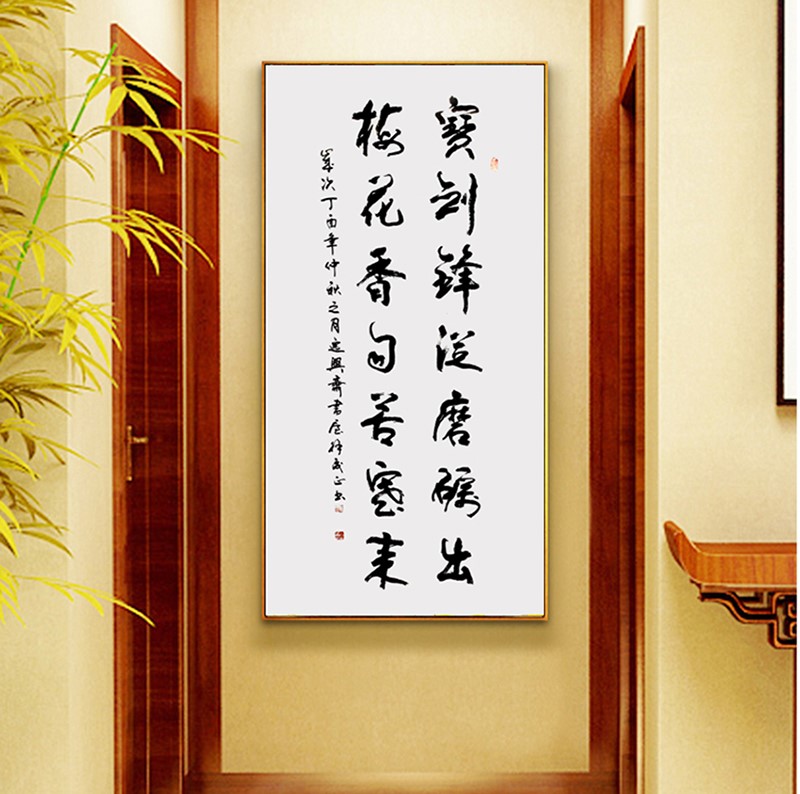 寶劍鋒從磨礪出
梅花香自苦寒来
歲次丁酉年仲秋之月 興齋書 成正書